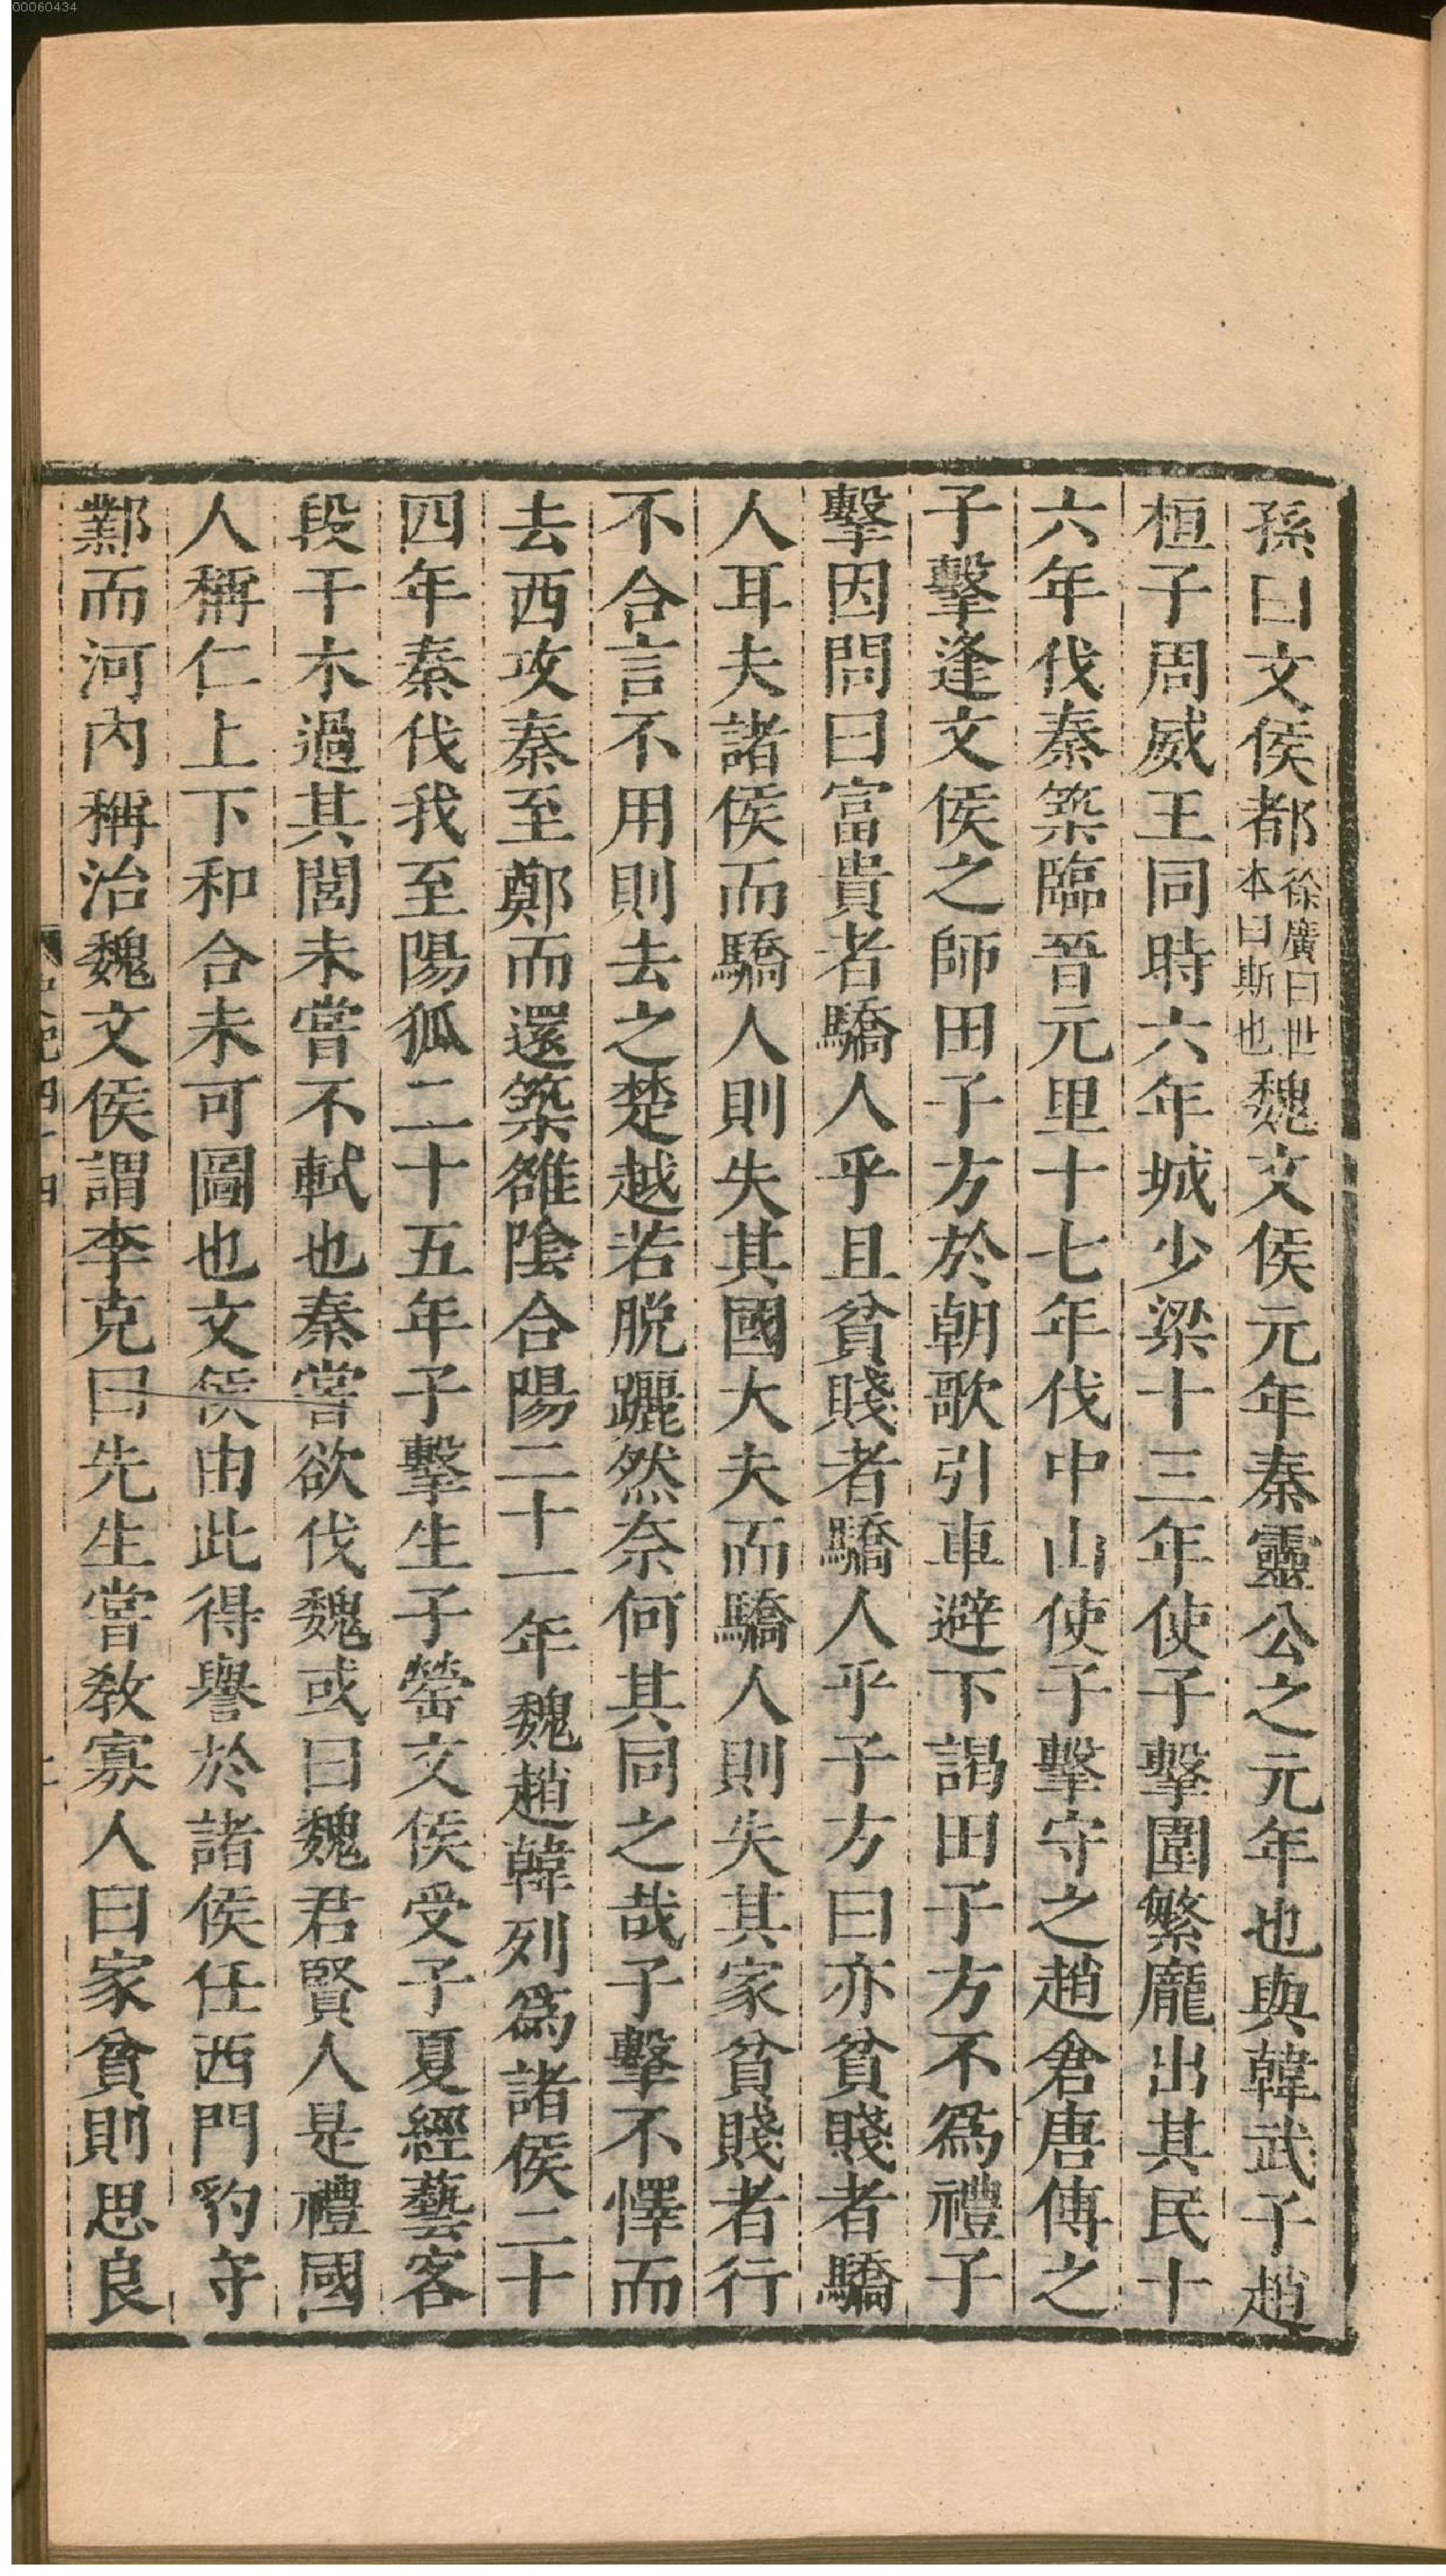 00060434
孫曰文侯都徐廣曰世本曰斯也魏文侯元年秦靈公之元年也與韓武子趙
桓子周威王同時六年城少梁十三年使子擊圍繁龐出其民十
六年伐秦築臨晉元里十七年伐中山使子擊守之趙倉唐傅之
子擊逢文侯之師田子方於朝歌引車避下謁田子方不爲禮子
擊因問曰富貴者驕人乎且貧賤者驕人乎子方曰亦貧賤者驕
人耳夫諸侯而驕人則失其國大夫而驕人則失其家貧賤者行
不合言不用則去之楚越若脫躧然奈何其同之哉子擊不懌而
去西攻秦至鄭而還築雒陰合陽二十一年魏趙韓列爲諸侯二十
四年秦伐我至陽狐二十五年子擊生子罃文侯受子夏經藝客
段干木過其閭未嘗不軾也秦嘗欲伐魏或曰魏君賢人是禮國
人稱仁上下和合未可圖也文侯由此得譽於諸侯任西門豹守
鄴而河內稱治魏文侯謂李克曰先生嘗教寡人曰家貧則思良